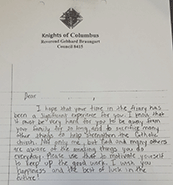 Knights of Columbus
Reverend Gebhard Braungart
Council 8415
Dear
I hope that your time in the Army has
been a significant experience for you. I know that
it must be very hard for you to be away from
your family for so long and to sacrifice many
other things to help strengthen the Catholic
church. Not only me, but God and many others
are aware of the amazing things you do
everyday. Please use that to motivate yourself
to keep up the good work. I wish you
happiness and the best of luck in the
future!